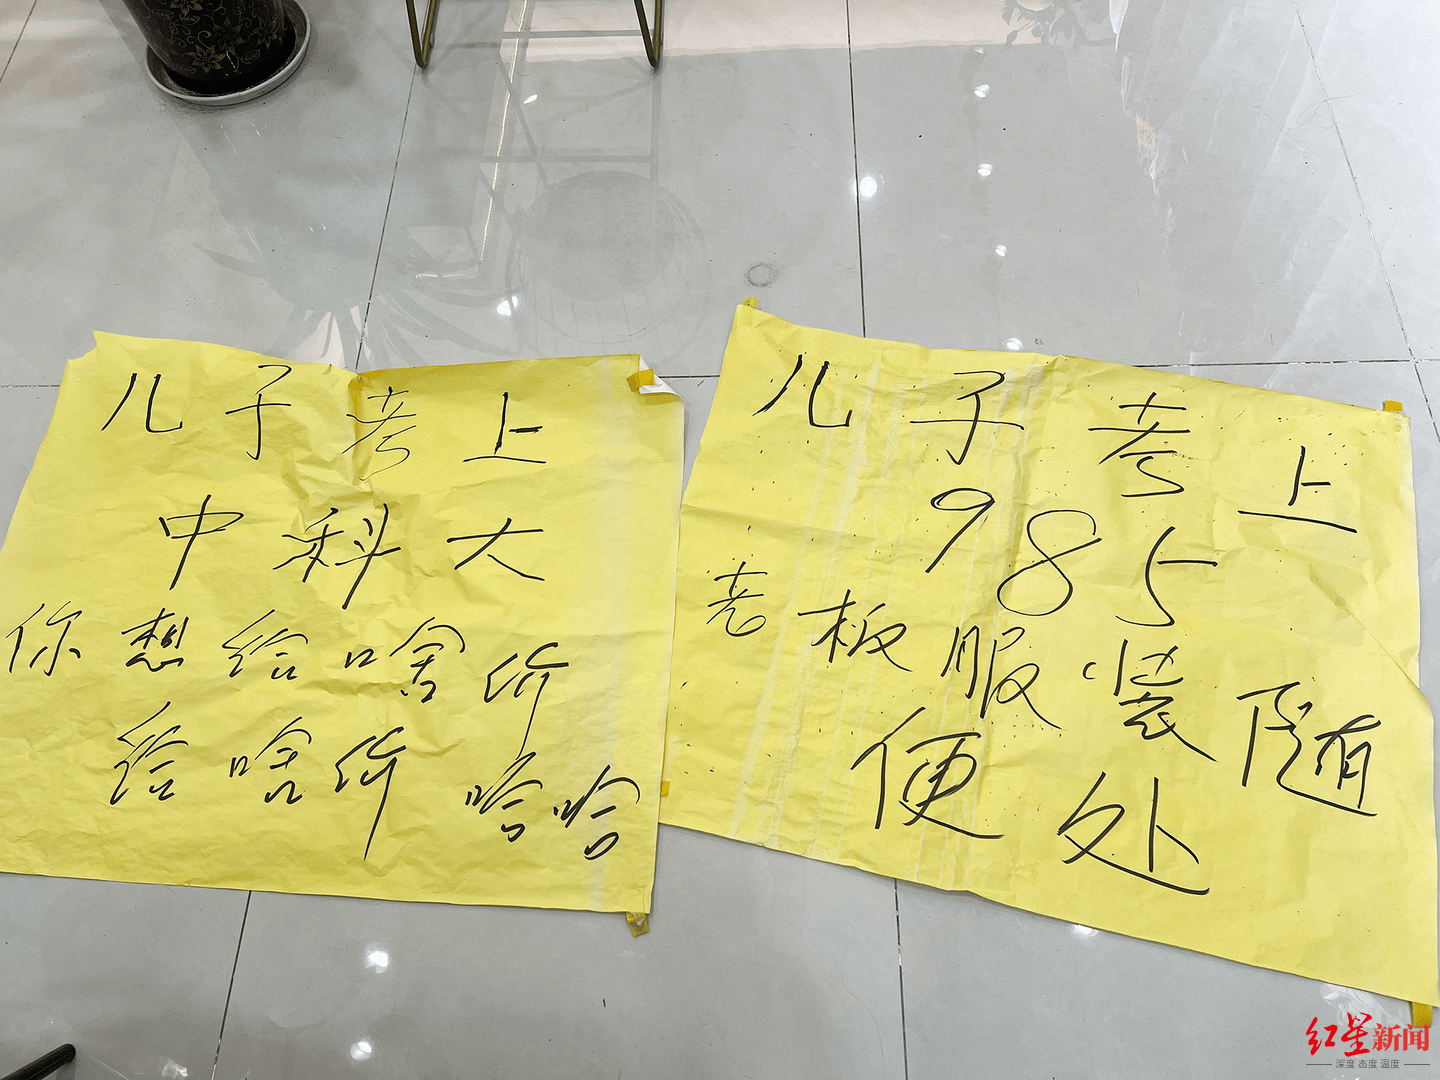 儿子考上
中科大
你想给啥价
给啥价哈哈
儿子考上
985
老板服装随
便处
红星新闻
深度 态度 温度